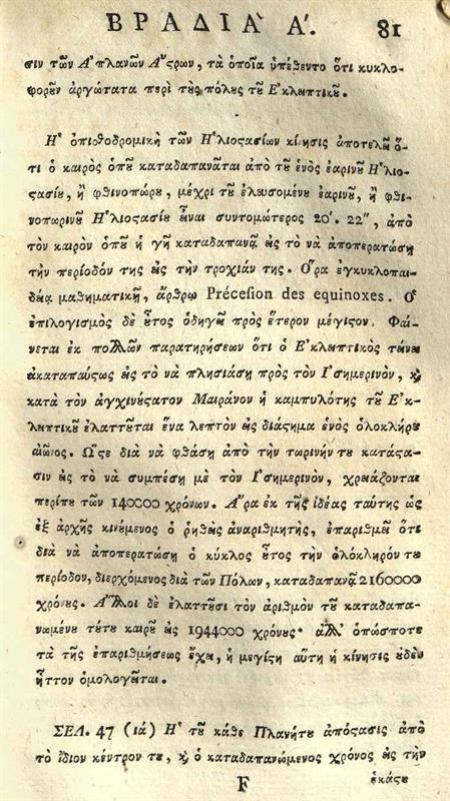 ΒΡΑΔΙᾺ Α΄. 81
σιν τῶν Ἀπλανῶν Ἄϛρων, τὰ ὁποῖα ὑπέθεντο ὅτι κυκλο-
φορȣ͂ν ἀργώτατα περὶ τȣ̀ς πόλȣς τȣ͂ Ἐκλειπτικȣ͂.
Ἡ ὀπιθοδρομικὴ τῶν Ἡλιοϛασίων κίνησις ἀποτελεῖ ὅ-
τι ὁ καιρὸς ὁπȣ͂ καταδαπανᾶται ἀπὸ τȣ͂ ἑνὸς ἐαρινȣ͂ Ἡλιο-
ϛασίȣ, ἢ φθινοπώρȣ, μέχρι τȣ͂ ἐλευσομένȣ ἐαρινȣ͂, ἢ φθι-
νοπωρινȣ͂ Ἡλιοϛασίȣ εἶναι συντομώτερος 20′. 22″, ἀπὸ
τὸν καιρὸν ὁπȣ͂ ἡ γῆ καταδαπανᾷ εἰς τὸ νὰ ἀποπερατώσῃ
τὴν περίοδόν της εἰς τὴν τροχιάν της. Ὅρα ἐγκυκλοπαι-
δείᾳ μαθηματικῇ, ἄρθρῳ Précession des equinoxes. Ὁ
ἐπιλογισμὸς δὲ ȣ̓͂τος ὁδηγεῖ πρὸς ἕτερον μέγιϛον. Φαί-
νεται ἐκ πολλῶν παρατηρήσεων ὅτι ὁ Ἐκλειπτικὸς τείνει
ἀκαταπαύϛως εἰς τὸ νὰ πλησιάσῃ πρὸς τὸν Ἰσημερινὸν, ϗ
κατὰ τὸν ἀγχινȣ́ϛατον Μαιράνον ἡ καμπυλότης τȣ͂ Ἐκ-
λειπτικȣ͂ ἐλαττȣ͂ται ἕνα λεπτὸν εἰς διάϛημα ἑνὸς ὁλοκλήρȣ
αἰῶνος. Ὥϛε διὰ νὰ φθάσῃ ἀπὸ τὴν τωρινήν τȣ κατάϛα-
σιν εἰς τὸ νὰ συμπέσῃ μὲ τὸν Ἰσημερινὸν, χρειάζονται
περίπȣ τῶν 140000 χρόνων. Ἄρα ἐκ τῆς ἰδέας ταύτης ὡς
ἐξ ἀρχῆς κινȣ́μενος ὁ ῥηθεὶς ἀναριθμητὴς, ἐπαριθμεῖ ὅτι
διὰ νὰ ἀποπερατώσῃ ὁ κύκλος ȣ̓͂τος τὴν ὁλόκληρόν τȣ
περίοδον, διερχόμενος διὰ τῶν Πόλων, καταδαπανᾷ 2160000
χρόνȣς. Ἄλλοι δὲ ἐλαττȣ͂σι τὸν ἀριθμὸν τȣ͂ καταδαπα-
νωμένȣ τȣ́τȣ καιρȣ͂ εἰς 1944000 χρόνȣς· ἀλλ' ὁπώσποτε
τὰ τῆς ἐπαριθμήσεως ἔχει, ἡ μεγίϛη αὕτη ἡ κίνησις ȣ̓δὲν
ἧττον ὁμολογεῖται.
ΣΕΛ. 47 (ιά) Ἡ τȣ͂ κάθε Πλανήτȣ ἀπόϛασις ἀπὸ
τὸ ἴδιον κέντρον τȣ, ϗ ὁ καταδαπανώμενος χρόνος εἰς τὴν
F ἑκάϛȣ